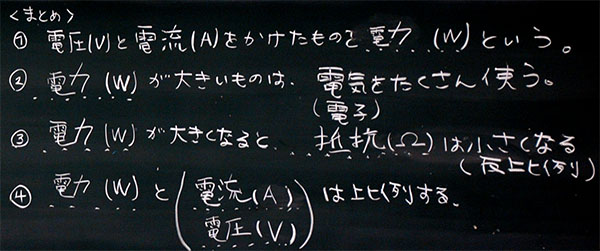 <まとめ>
① 電圧(V)と電流(A)をかけたものを電力(W)という。
② 電力(W)が大きいものは、電気をたくさん使う。
(電子)
③ 電力(W)が大きくなると、抵抗(Ω)は小さくなる
(反比例)
④ 電力(W)と(電流(A)
電圧(V))は比例する。